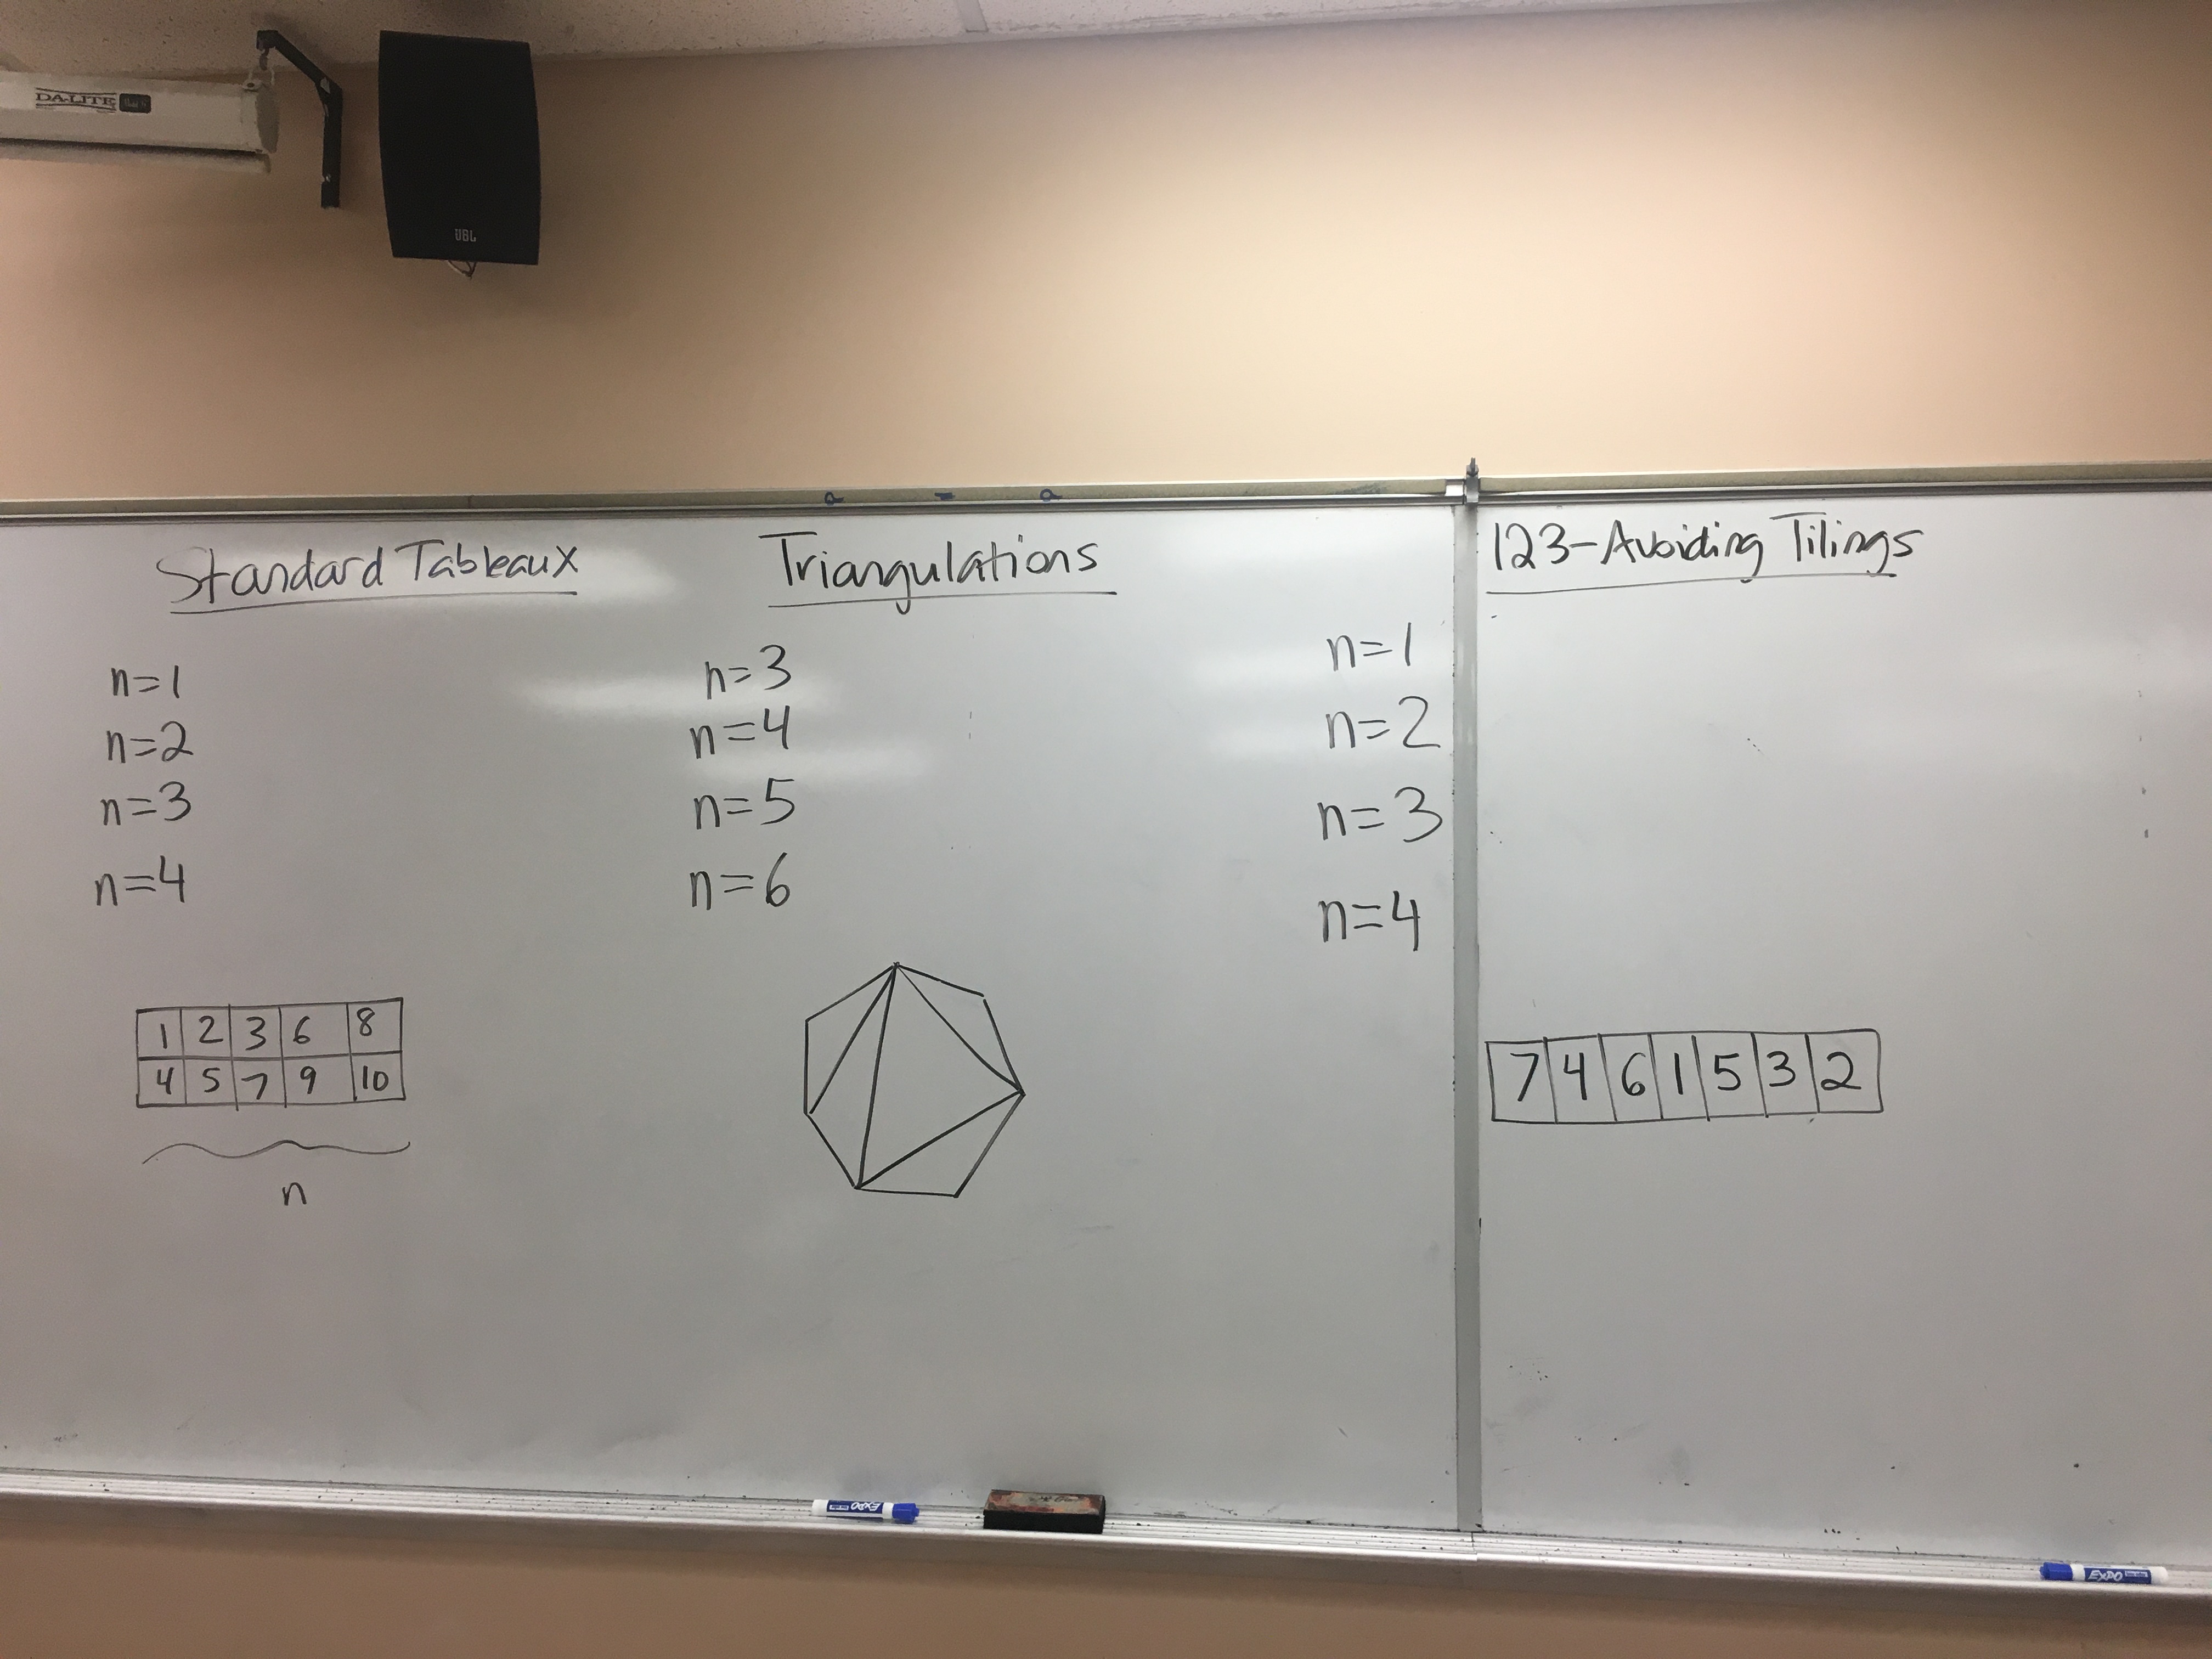 DA-LITE
JBL
Standard Tableaux
n=1
n=2
n=3
n=4
1 2 3 6 8
4 5 7 9 10
n
Triangulations
n=3
n=4
n=5
n=6
123-Avoiding Tilings
n=1
n=2
n=3
n=4
7 4 6 1 5 3 2
EXPO
EXPO